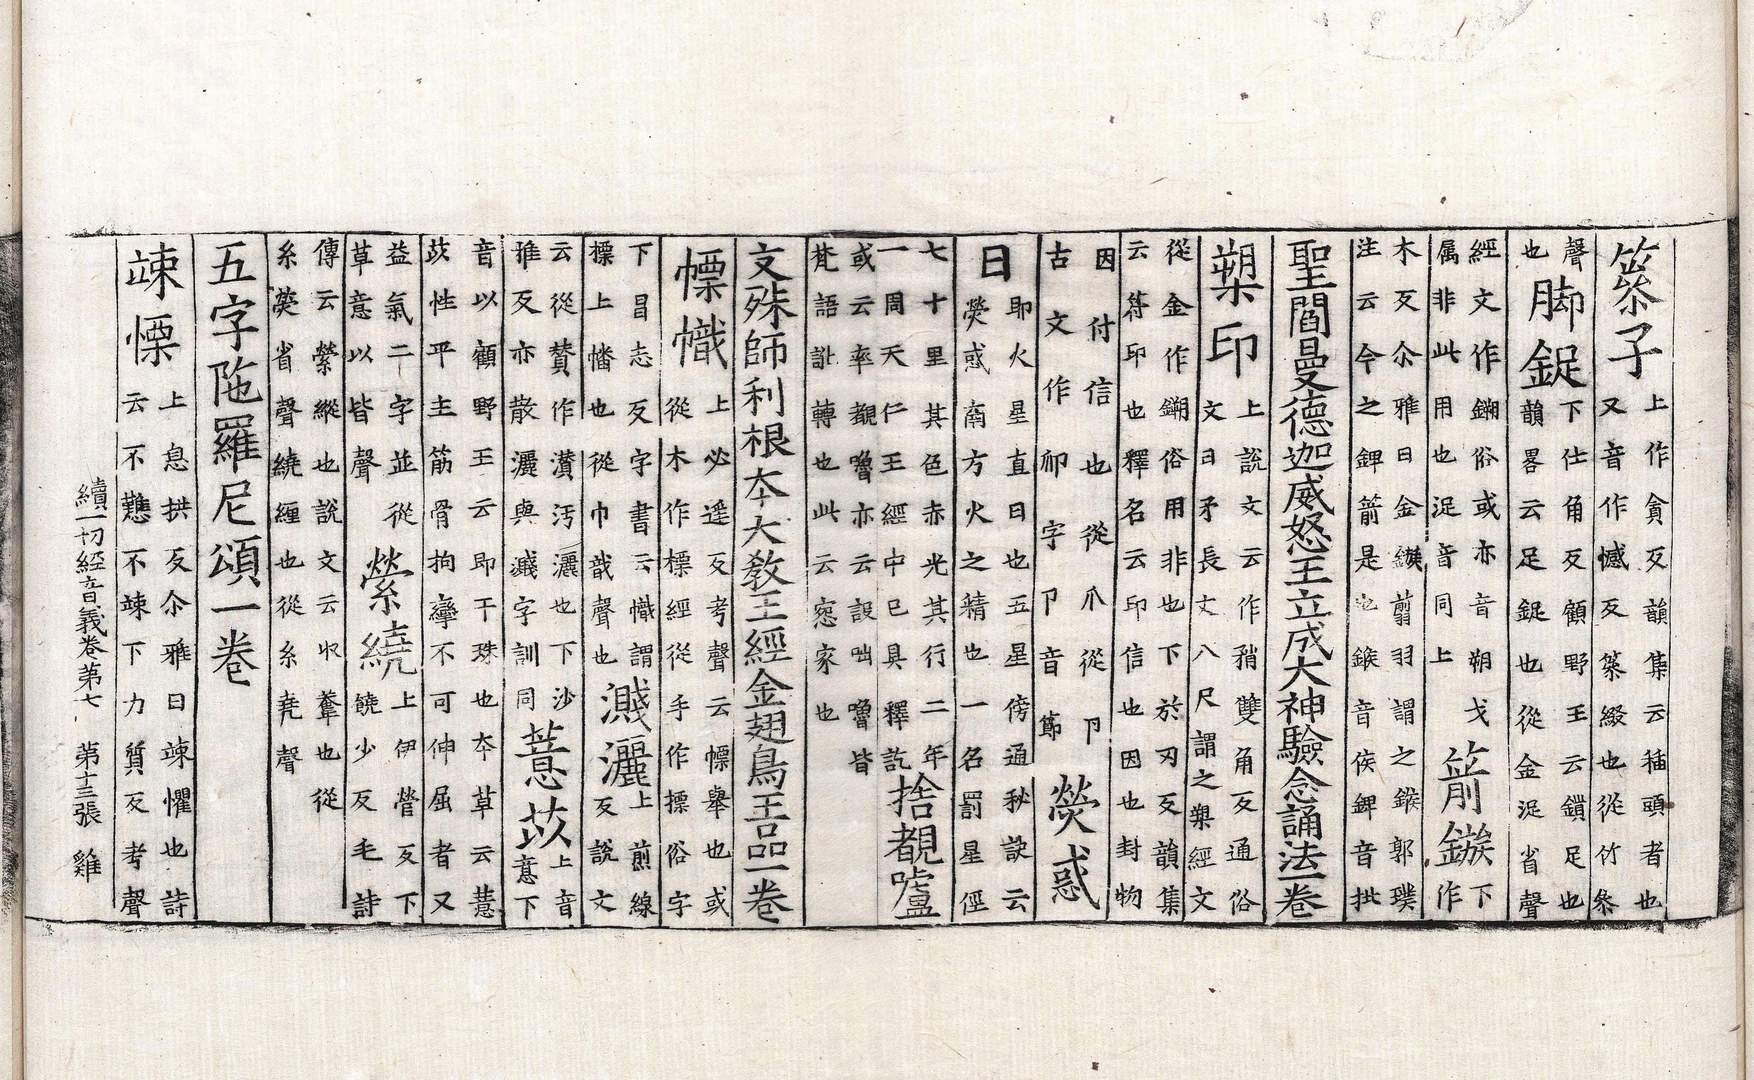 篸子上作貪反韻集云插頭者也又音作憾反篸綴也從竹参
聲也脚鋜下仕角反顧野王云鎖足也韻畧云足鋜也從金浞省聲
經文作鎙俗或亦音朔戈属非此用也浞音同上箭鏃下作
木反尒雅曰金鏃翦羽謂之鍭郭璞注云今之錍箭是也鍭音侯錍音批
聖閻曼德迦威怒王立成大神驗念誦法一卷
槊印上說文云作矟雙角反通俗文曰矛長丈八尺謂之槊經文
從金作鎙俗用非也下於刃反韻集云符印也釋名云印信也因也封物
因付信也從爪從卪古文作字卪音節熒惑
日即火星直日也五星傍通秘訣云熒惑南方火之精也一名罰星俓
七十里其色赤光其行二年一周天仁王經中已具釋訖捨覩嚧
或云窣覩嚕亦云設咄嚕皆梵語訛轉也此云惌家也
文殊師利根本大教王經金翅鳥王品一卷
慓幟上必遥反考聲云慓舉也或從木作標經從手作摽俗字
下昌志反字書云幟謂摽上幡也從巾戠聲也濺灑上煎線反說文
云從贊作灒汚灑也下沙雅反亦散灑與濺字訓同薏苡上音意下
音以顧野王云即干珠也本草云薏苡性平主筋骨拘攣不可伸屈者又
益氣二字並從草意以皆聲縈繞上伊營反下饒少反毛詩
傳云縈縱也說文云收䡮也從糸熒省聲繞纏也從糸堯聲
五字陁羅尼頌一卷
竦慄上息拱反尒雅曰竦懼也詩云不戁不竦下力質反考聲
續一切經音義卷第七 第十三張 雞